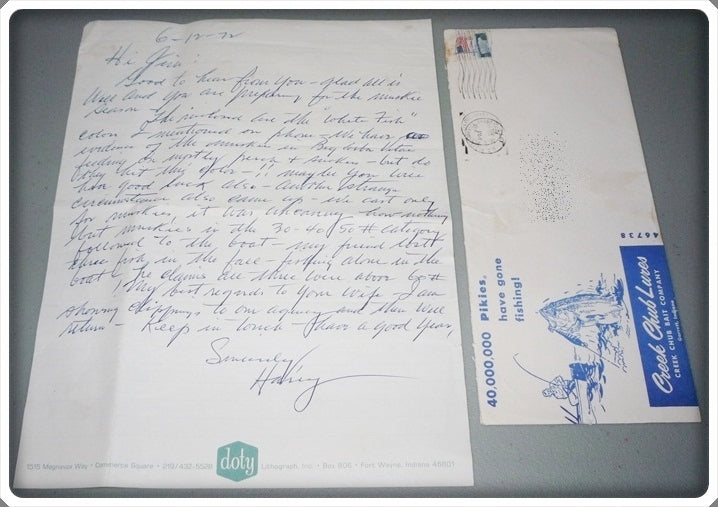 6-12-72
Hi Jim!
Good to hear from you - glad all is
well and you are preparing for the muskie
season -
The enclosed are the "White Fish"
color I mentioned on phone - We have
evidence of the muskies in Big
feeding on mostly perch & suckers - but do
they hit this color - !! maybe you will
have good luck also - Another strange
circumstance also came up - we cast only
for muskies, it was uncanny how nothing
but muskies in the 30-40, 50# category
followed to the boat - my friend lost
three fish in the face - fishing alone in the
boat - He claims all three were above 60#
My best regards to your wife, I am
showing clippings to our agency and then will
return - Keep in touch - Have a good year,
Sincerely
Harvey
1515 Magnavox Way • Commerce Square • 219/432-5528 doty Lithograph, Inc. • Box 806 • Fort Wayne, Indiana 46801
46738
40,000,000 Pikies.
have gone
fishing!
Creek Chub Lures
CREEK CHUB BAIT COMPANY
Garrett, Indiana